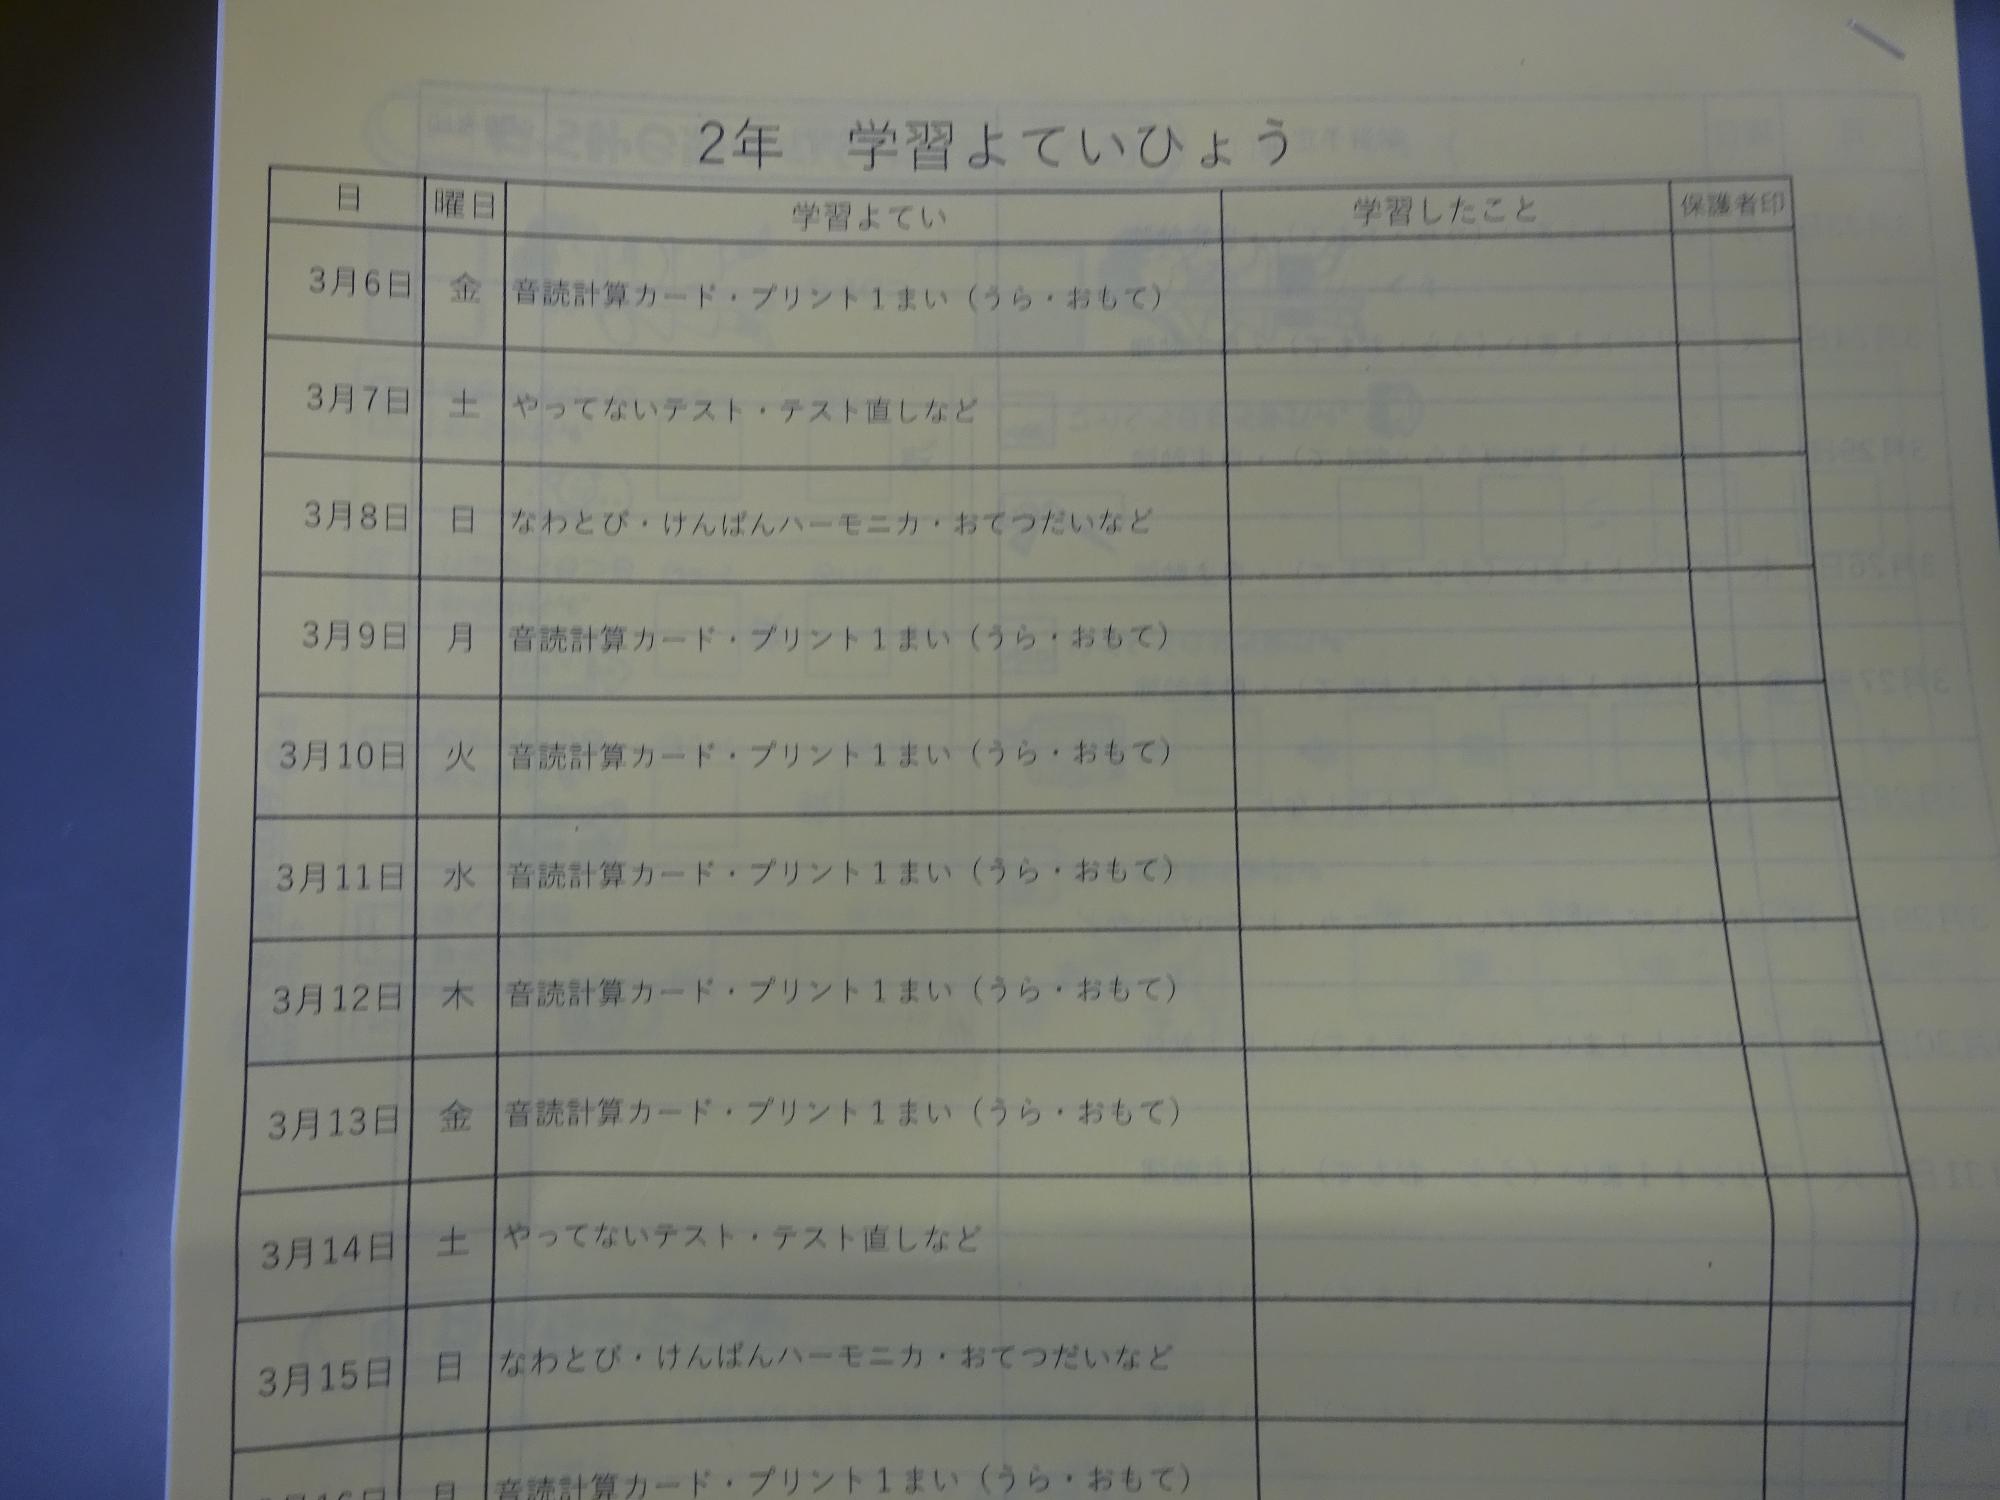 2年　学習よていひょう
日 曜日 学習よてい 学習したこと 保護者印
3月6日 金 音読計算カード・プリント1まい（うら・おもて）
3月7日 土 やってないテスト・テスト直しなど
3月8日 日 なわとび・けんばんハーモニカ・おてつだいなど
3月9日 月 音読計算カード・プリント1まい（うら・おもて）
3月10日 火 音読計算カード・プリント1まい（うら・おもて）
3月11日 水 音読計算カード・プリント1まい（うら・おもて）
3月12日 木 音読計算カード・プリント1まい（うら・おもて）
3月13日 金 音読計算カード・プリント1まい（うら・おもて）
3月14日 土 やってないテスト・テスト直しなど
3月15日 日 なわとび・けんばんハーモニカ・おてつだいなど
3月16日 月 音読計算カード・プリント1まい（うら・おもて）